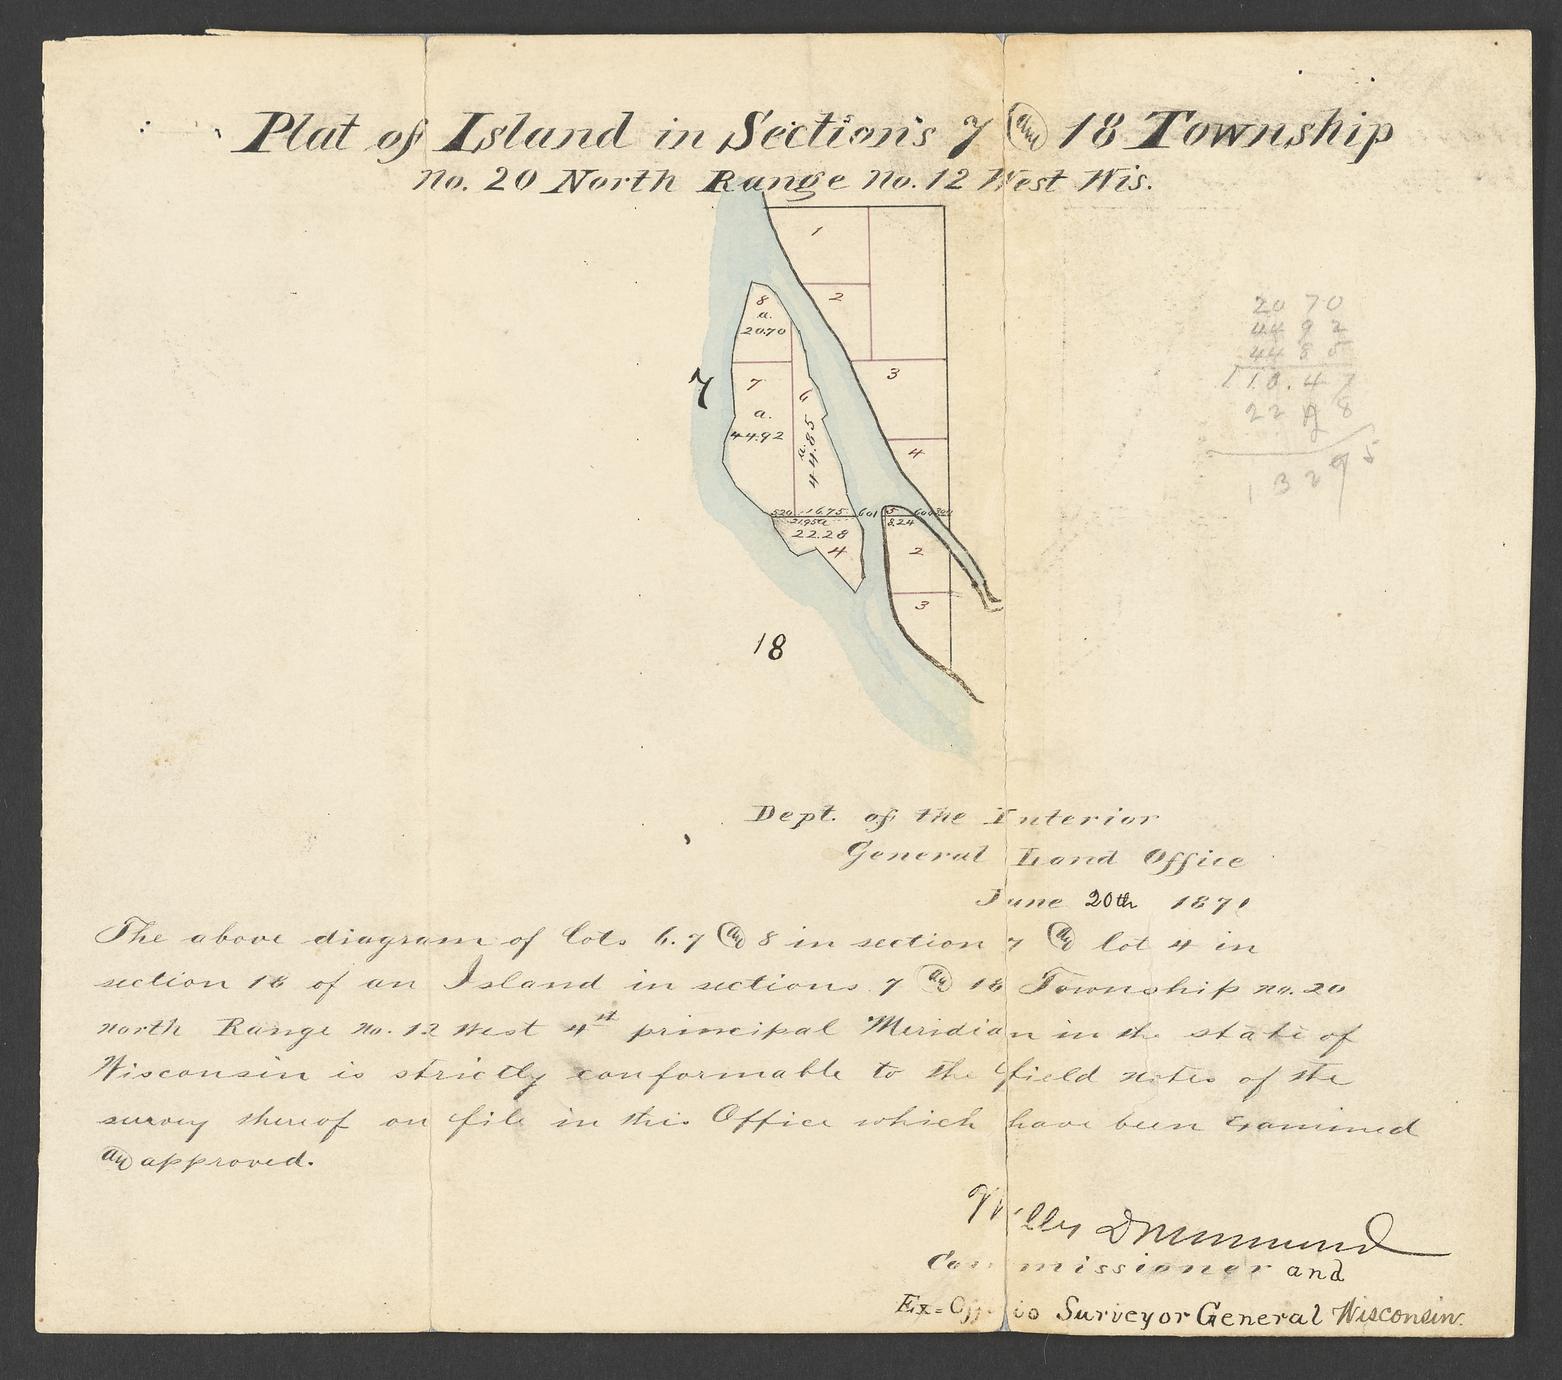 Plat of Island in Section's 7 and 18 Township
No. 20 North Range No. 12 West Wis.
1
2
3
4
8
a.
20.70
7
a.
44.92
6
a.
44.85
7
5.20 16.75 6.01 5
21.95a 8.24
22.28
4
2
3
18
20 70
44 92
44 85
110.47
22 28
132 75
Dept. of the Interior
General Land Office
June 20th 1871
The above diagram of lots 6. 7 and 8 in section 7 and lot 4 in
section 18 of an Island in sections 7 and 18 Township no. 20
north Range No. 12 West 4st principal Meridian in the state of
Wisconsin is strictly conformable to the field notes of the
survey thereof on file in this Office which have been Examined
and approved.
Willis Drummond
Commissioner and
Ex=Officio Surveyor General Wisconsin.